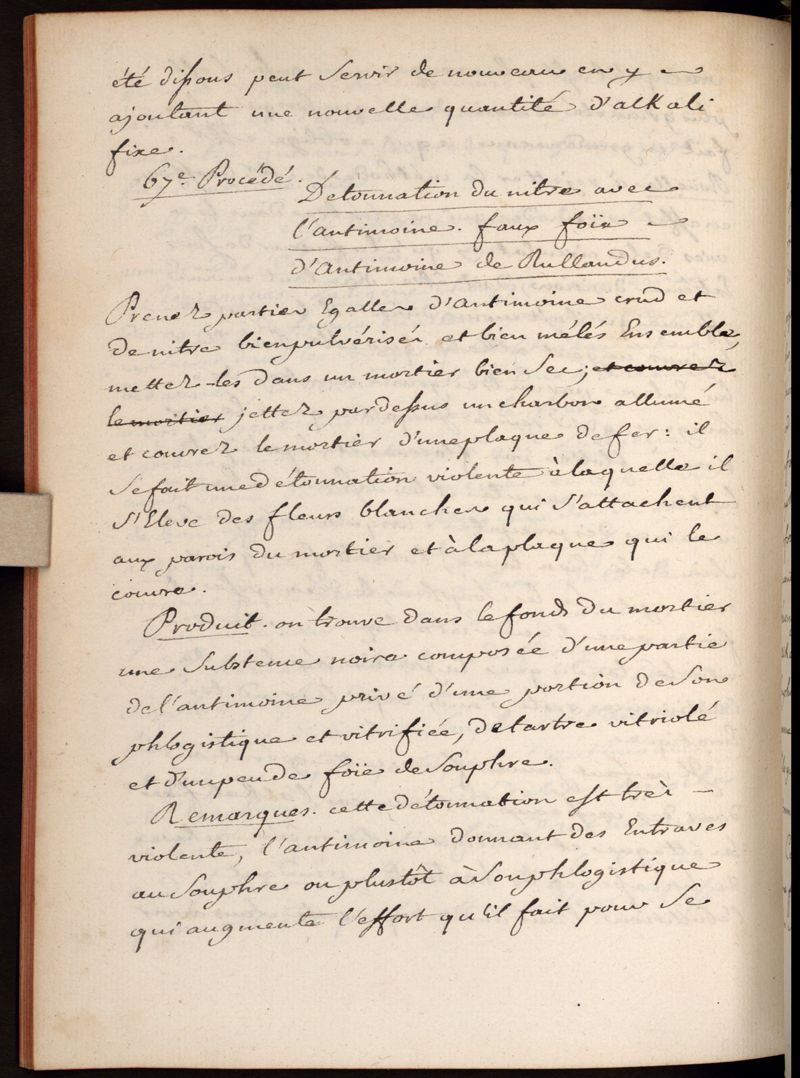 été dissous peut servir de nouveau en y
ajoutant une nouvelle quantité d'alkali
fixe.
67e. Procédé.
Détonnation du nitre avec
l'antimoine. faux foïe
d'Antimoine de Rullandus.
Prenez parties Egalles d'antimoine crud et
de nitre bien pulvérisés et bien mêlés Ensemble,
mettez-les dans un mortier bien sec; et couvrez
le mortier jettez par dessus un charbon allumé
et couvrez le mortier d'une plaque de fer: il
se fait une détonnation violente à laquelle il
s'Eleve des fleurs blanches qui s'attachent
aux parois du mortier et à la plaque qui le
couvre.
Produit. on trouve dans le fond du mortier
une Substence noire composée d'une partie
de l'antimoine privé d'une portion de son
phlogistique et vitrifiée, de tartre vitriolé
et d'un peu de foïe de Souphre.
Remarques. cette détonnation est très
violente, l'antimoine donnant des Entraves
au Souphre ou plustôt à son phlogistique
qui augmente l'effort qu'il fait pour se